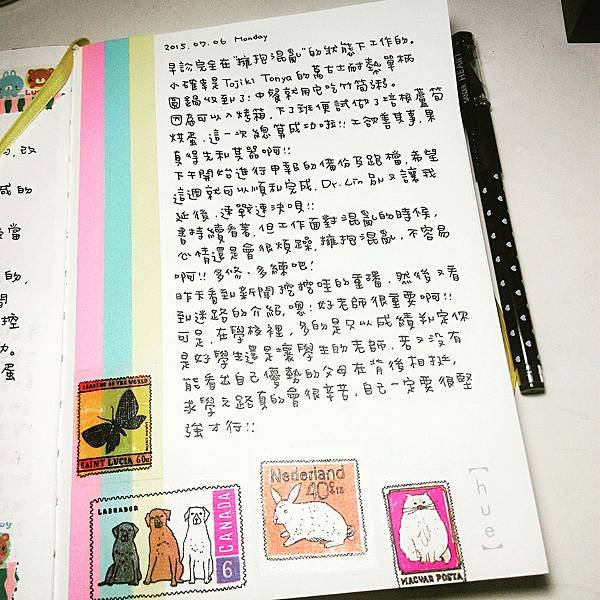 2015.07.06 Monday
早診完全在"擁抱混亂"的狀態下工作的。
小確幸是Tojiki Tonya的萬古士耐熱單柄
圓鍋收到了!中餐就用它吃竹筍粥。
因為可以入烤箱,下了班便試做了培根蘆筍
烘蛋,這一次總算成功啦!!工欲善其事,果
真得先利其器啊!!
下午開始進行申報的備份及跑檔,希望
這週就可以順利完成,Dr.Lin別又讓我
延後,速戰速決唄!!
書持續看著,但工作面對混亂的時候,
心情還是會很煩躁,擁抱混亂,不容易
啊!!多修、多練吧!
昨天看到新聞挖挖哇的重播,然後又看
到迷路的介紹,嗯!好老師很重要啊!!
可是,在學校裡,多的是只以成績判定你
是好學生還是壞學生的老師,若又沒有
能看出自己優勢的父母在背後相挺,
求學之路真的會很辛苦,自己一定要很堅
強才行!!
LEADERS OF THE WORLD
SAINT LUCIA 60c
LABRADOR
CANADA
6
Nederland
40+10
MAGYAR POSTA
【hue】
改
的
當
的,
控
功。
蛋